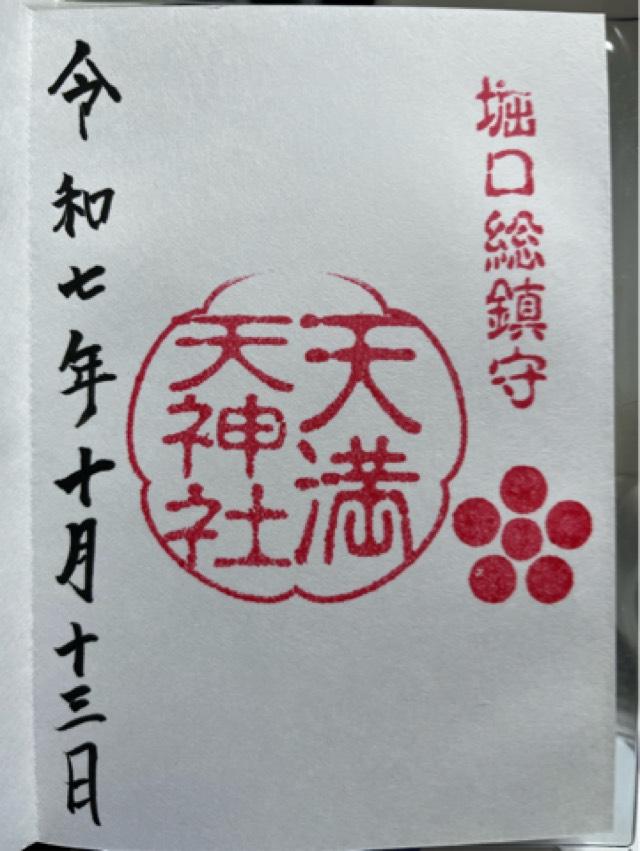 堀口総鎮守
天満
天神社
令和七年十月十三日